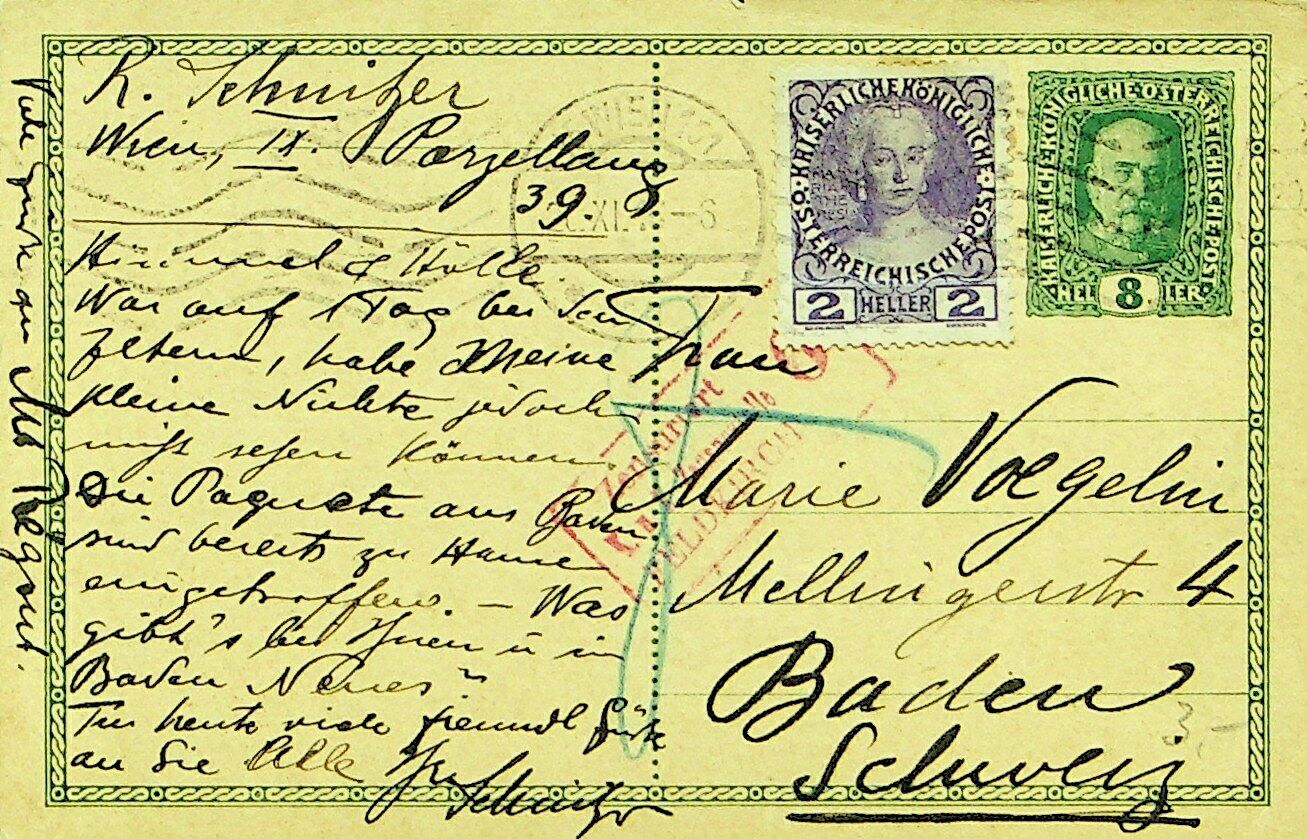 R. Schnitzer
Wien, IX. Porzellang
39.
Himmel & Hölle.
War auf 1 Tag bei den
Eltern, habe meine
kleine Nichte jedoch
nicht sehen können.
Die Paquete aus Baden
sind bereits zu Hause
eingetroffen. – Was
gibt's bei Ihnen u in
Baden Neues?
Für heute viele freundl Grüße
an Sie Alle Ihr
Viele Grüße an
WIEN
XI. -6
KAISERLICHE KÖNIGLICHE
ÖSTERREICHISCHE POST
2 HELLER 2
KAISERLICHE KÖNIGLICHE ÖSTERREICHISCHE POST
HEL 8 LER
Zensuriert
FELDKIRCH
Frau
Marie Voegelin
Mellingerstr 4
Baden
Schweiz
3.-